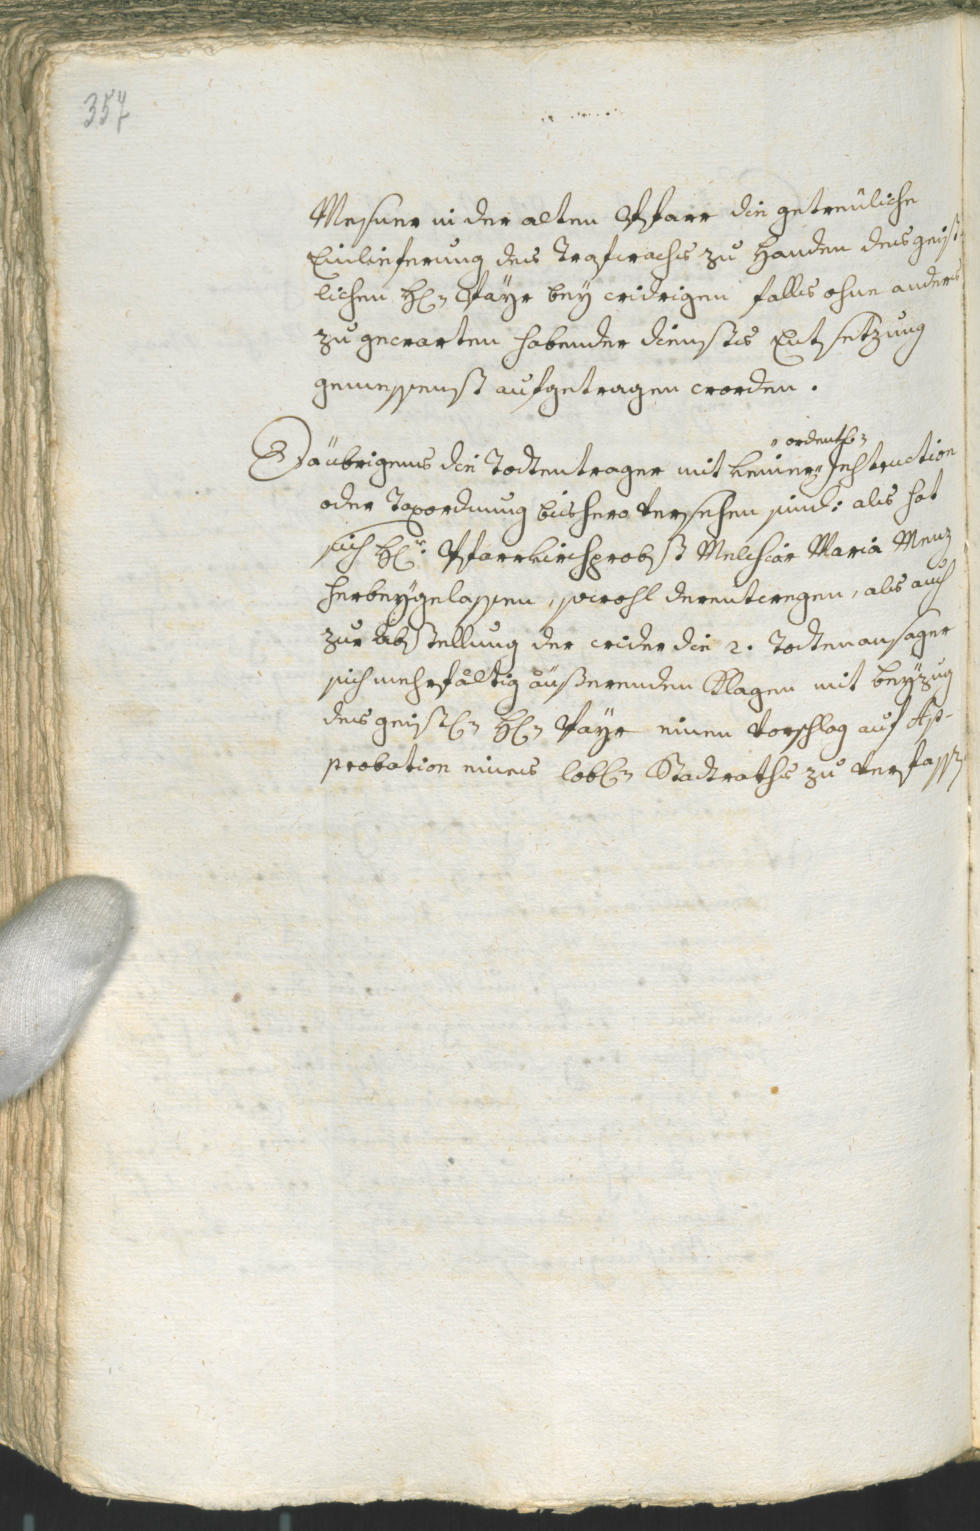 357
Messner in der alten Pfarr die getreuliche
Einlieferung des Tropfwachs zu Handen des geist-
lichen H: Payr bey widrigen falls ohne anders
zu gewarten habender Diensts Entsetzung
gemessenst aufgetragen worden.
Da übrigens die Todtentrager mit keiner Instruction
ordentl:
oder Taxordnung bishero versehen sind: als hat
sich H:r Pfarrkirchprobst Melchior Maria Menz
herbeygelassen, sowohl derentwegen, als auch
zur Abstellung der wider die 2. Todtenansager
sich mehrfältig äußerenden Klagen mit beyzug
des geistl: H: Payr einen Vorschlag auf Ap-
probation eines lobl: Stadtraths zu verfassen